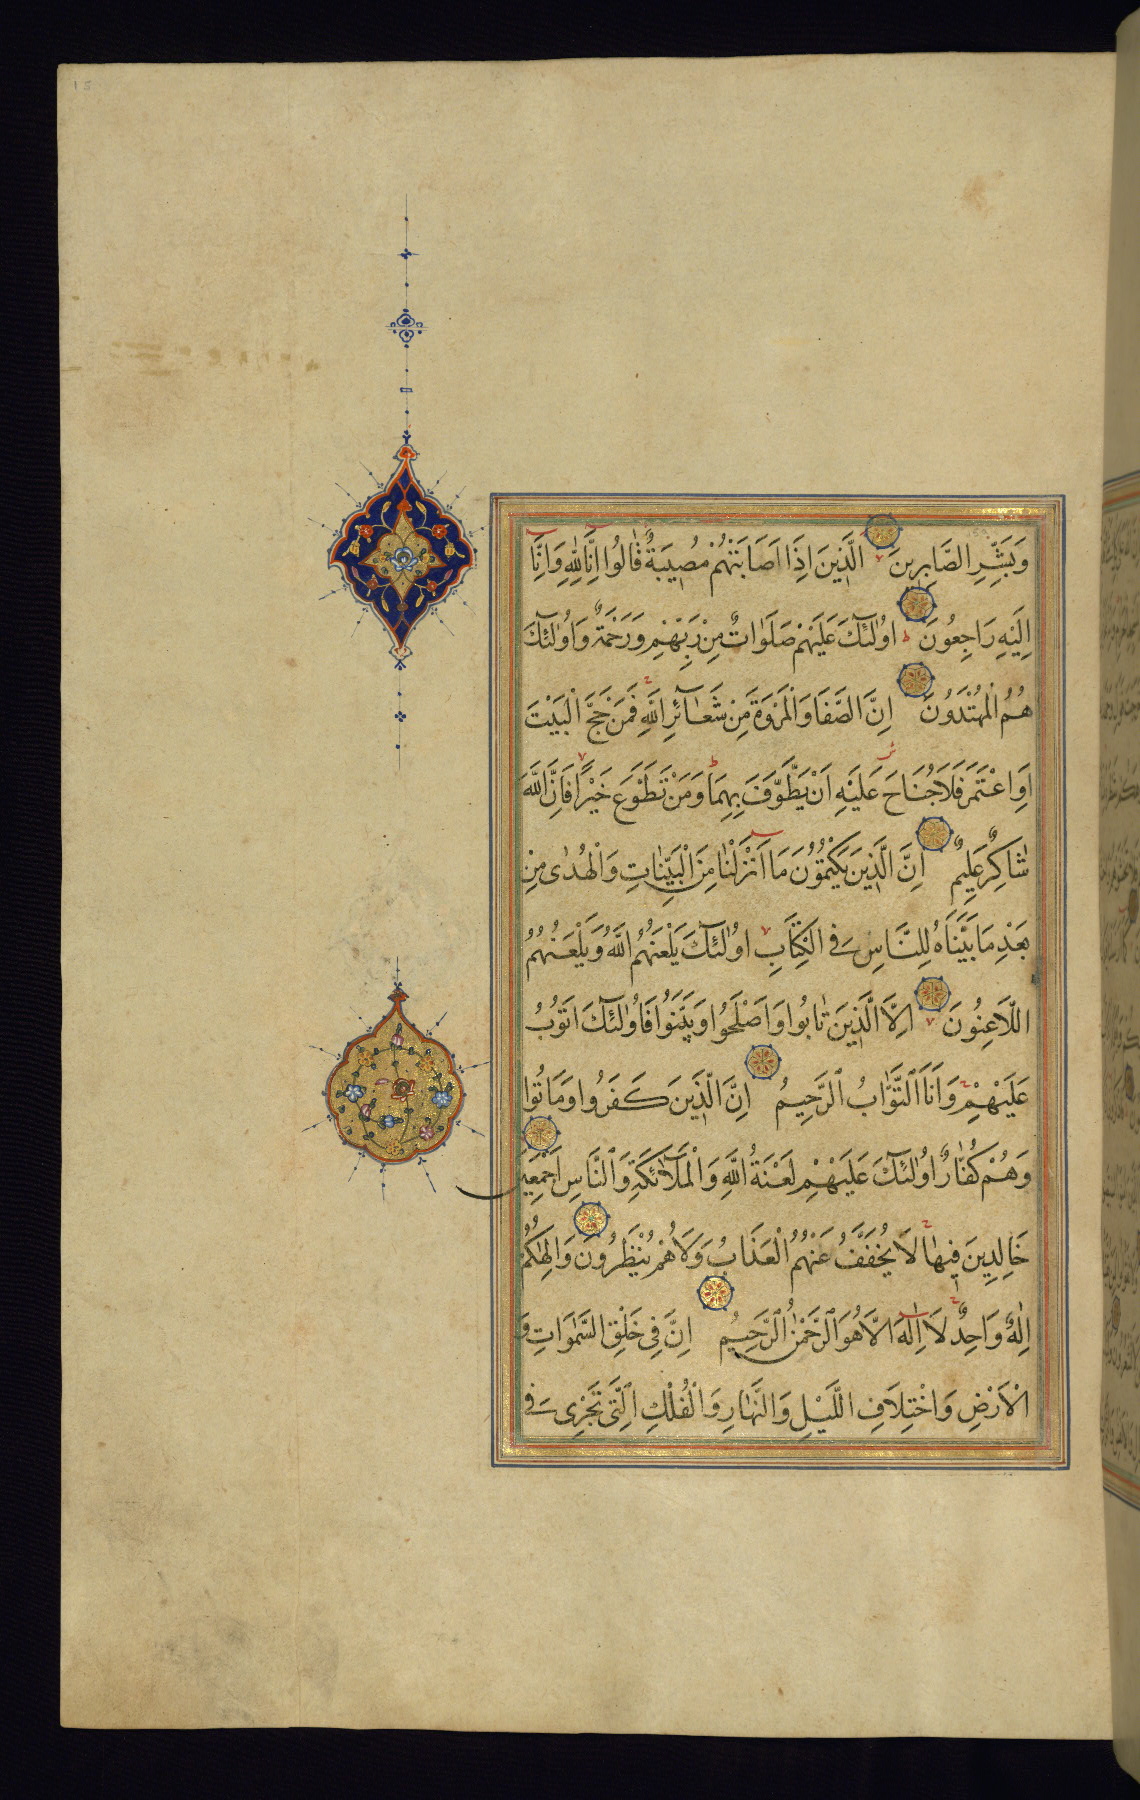 وَبَشِّرِ الصَّابِرِينَ الَّذِينَ اِذَا اَصَابَتْهُمْ مُصِيبَةٌ قَالُوا اِنَّا لِلّٰهِ وَاِنَّا
اِلَيْهِ رَاجِعُونَ اُولٰئِكَ عَلَيْهِمْ صَلَوَاتٌ مِنْ رَبِّهِمْ وَرَحْمَةٌ وَاُولٰئِكَ
هُمُ الْمُهْتَدُونَ اِنَّ الصَّفَا وَالْمَرْوَةَ مِنْ شَعَآئِرِ اللّٰهِ فَمَنْ حَجَّ الْبَيْتَ
اَوِ اعْتَمَرَ فَلَا جُنَاحَ عَلَيْهِ اَنْ يَطَّوَّفَ بِهِمَا وَمَنْ تَطَوَّعَ خَيْرًا فَاِنَّ اللّٰهَ
شَاكِرٌ عَلِيمٌ اِنَّ الَّذِينَ يَكْتُمُونَ مَا اَنْزَلْنَا مِنَ الْبَيِّنَاتِ وَالْهُدٰى مِنْ
بَعْدِ مَا بَيَّنَّاهُ لِلنَّاسِ فِي الْكِتَابِ اُولٰئِكَ يَلْعَنُهُمُ اللّٰهُ وَيَلْعَنُهُمُ
اللَّاعِنُونَ اِلَّا الَّذِينَ تَابُوا وَاَصْلَحُوا وَبَيَّنُوا فَاُولٰئِكَ اَتُوبُ
عَلَيْهِمْ وَاَنَا التَّوَّابُ الرَّحِيمُ اِنَّ الَّذِينَ كَفَرُوا وَمَاتُوا
وَهُمْ كُفَّارٌ اُولٰئِكَ عَلَيْهِمْ لَعْنَةُ اللّٰهِ وَالْمَلٰٓائِكَةِ وَالنَّاسِ اَجْمَعِينَ
خَالِدِينَ فِيهَا لَا يُخَفَّفُ عَنْهُمُ الْعَذَابُ وَلَا هُمْ يُنْظَرُونَ وَاِلٰهُكُمْ
اِلٰهٌ وَاحِدٌ لَا اِلٰهَ اِلَّا هُوَ الرَّحْمٰنُ الرَّحِيمُ اِنَّ فِي خَلْقِ السَّمٰوَاتِ وَ
الْاَرْضِ وَاخْتِلَافِ اللَّيْلِ وَالنَّهَارِ وَالْفُلْكِ الَّتِي تَجْرِي فِي